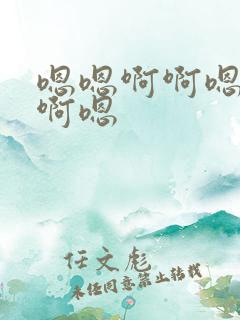 嗯嗯啊啊嗯
啊嗯
任文彪
未经同意禁止转载